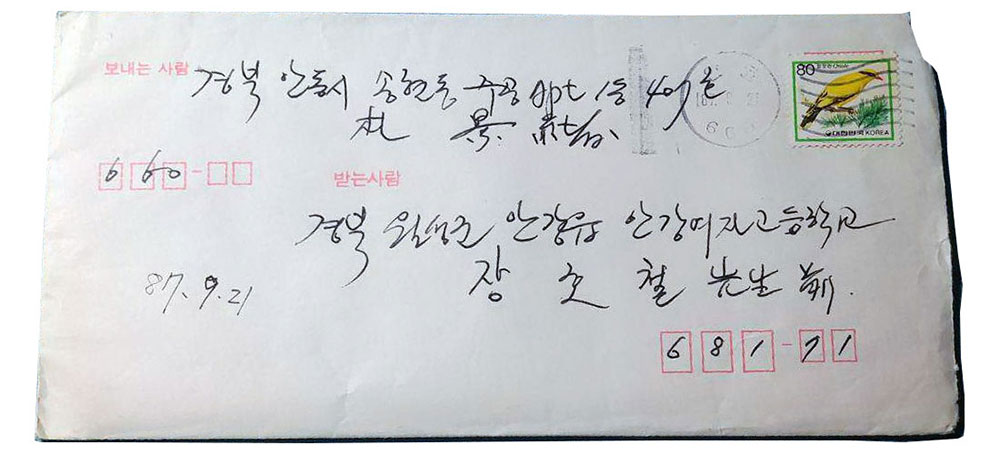 보내는 사람
경북 안동시 송현동 주공 apt 1동 401호
朴
660-
80
대한민국 KOREA
받는사람
경북 월성군 안강읍 안강여자고등학교
장 호 철 先生
87. 9. 21
681-71